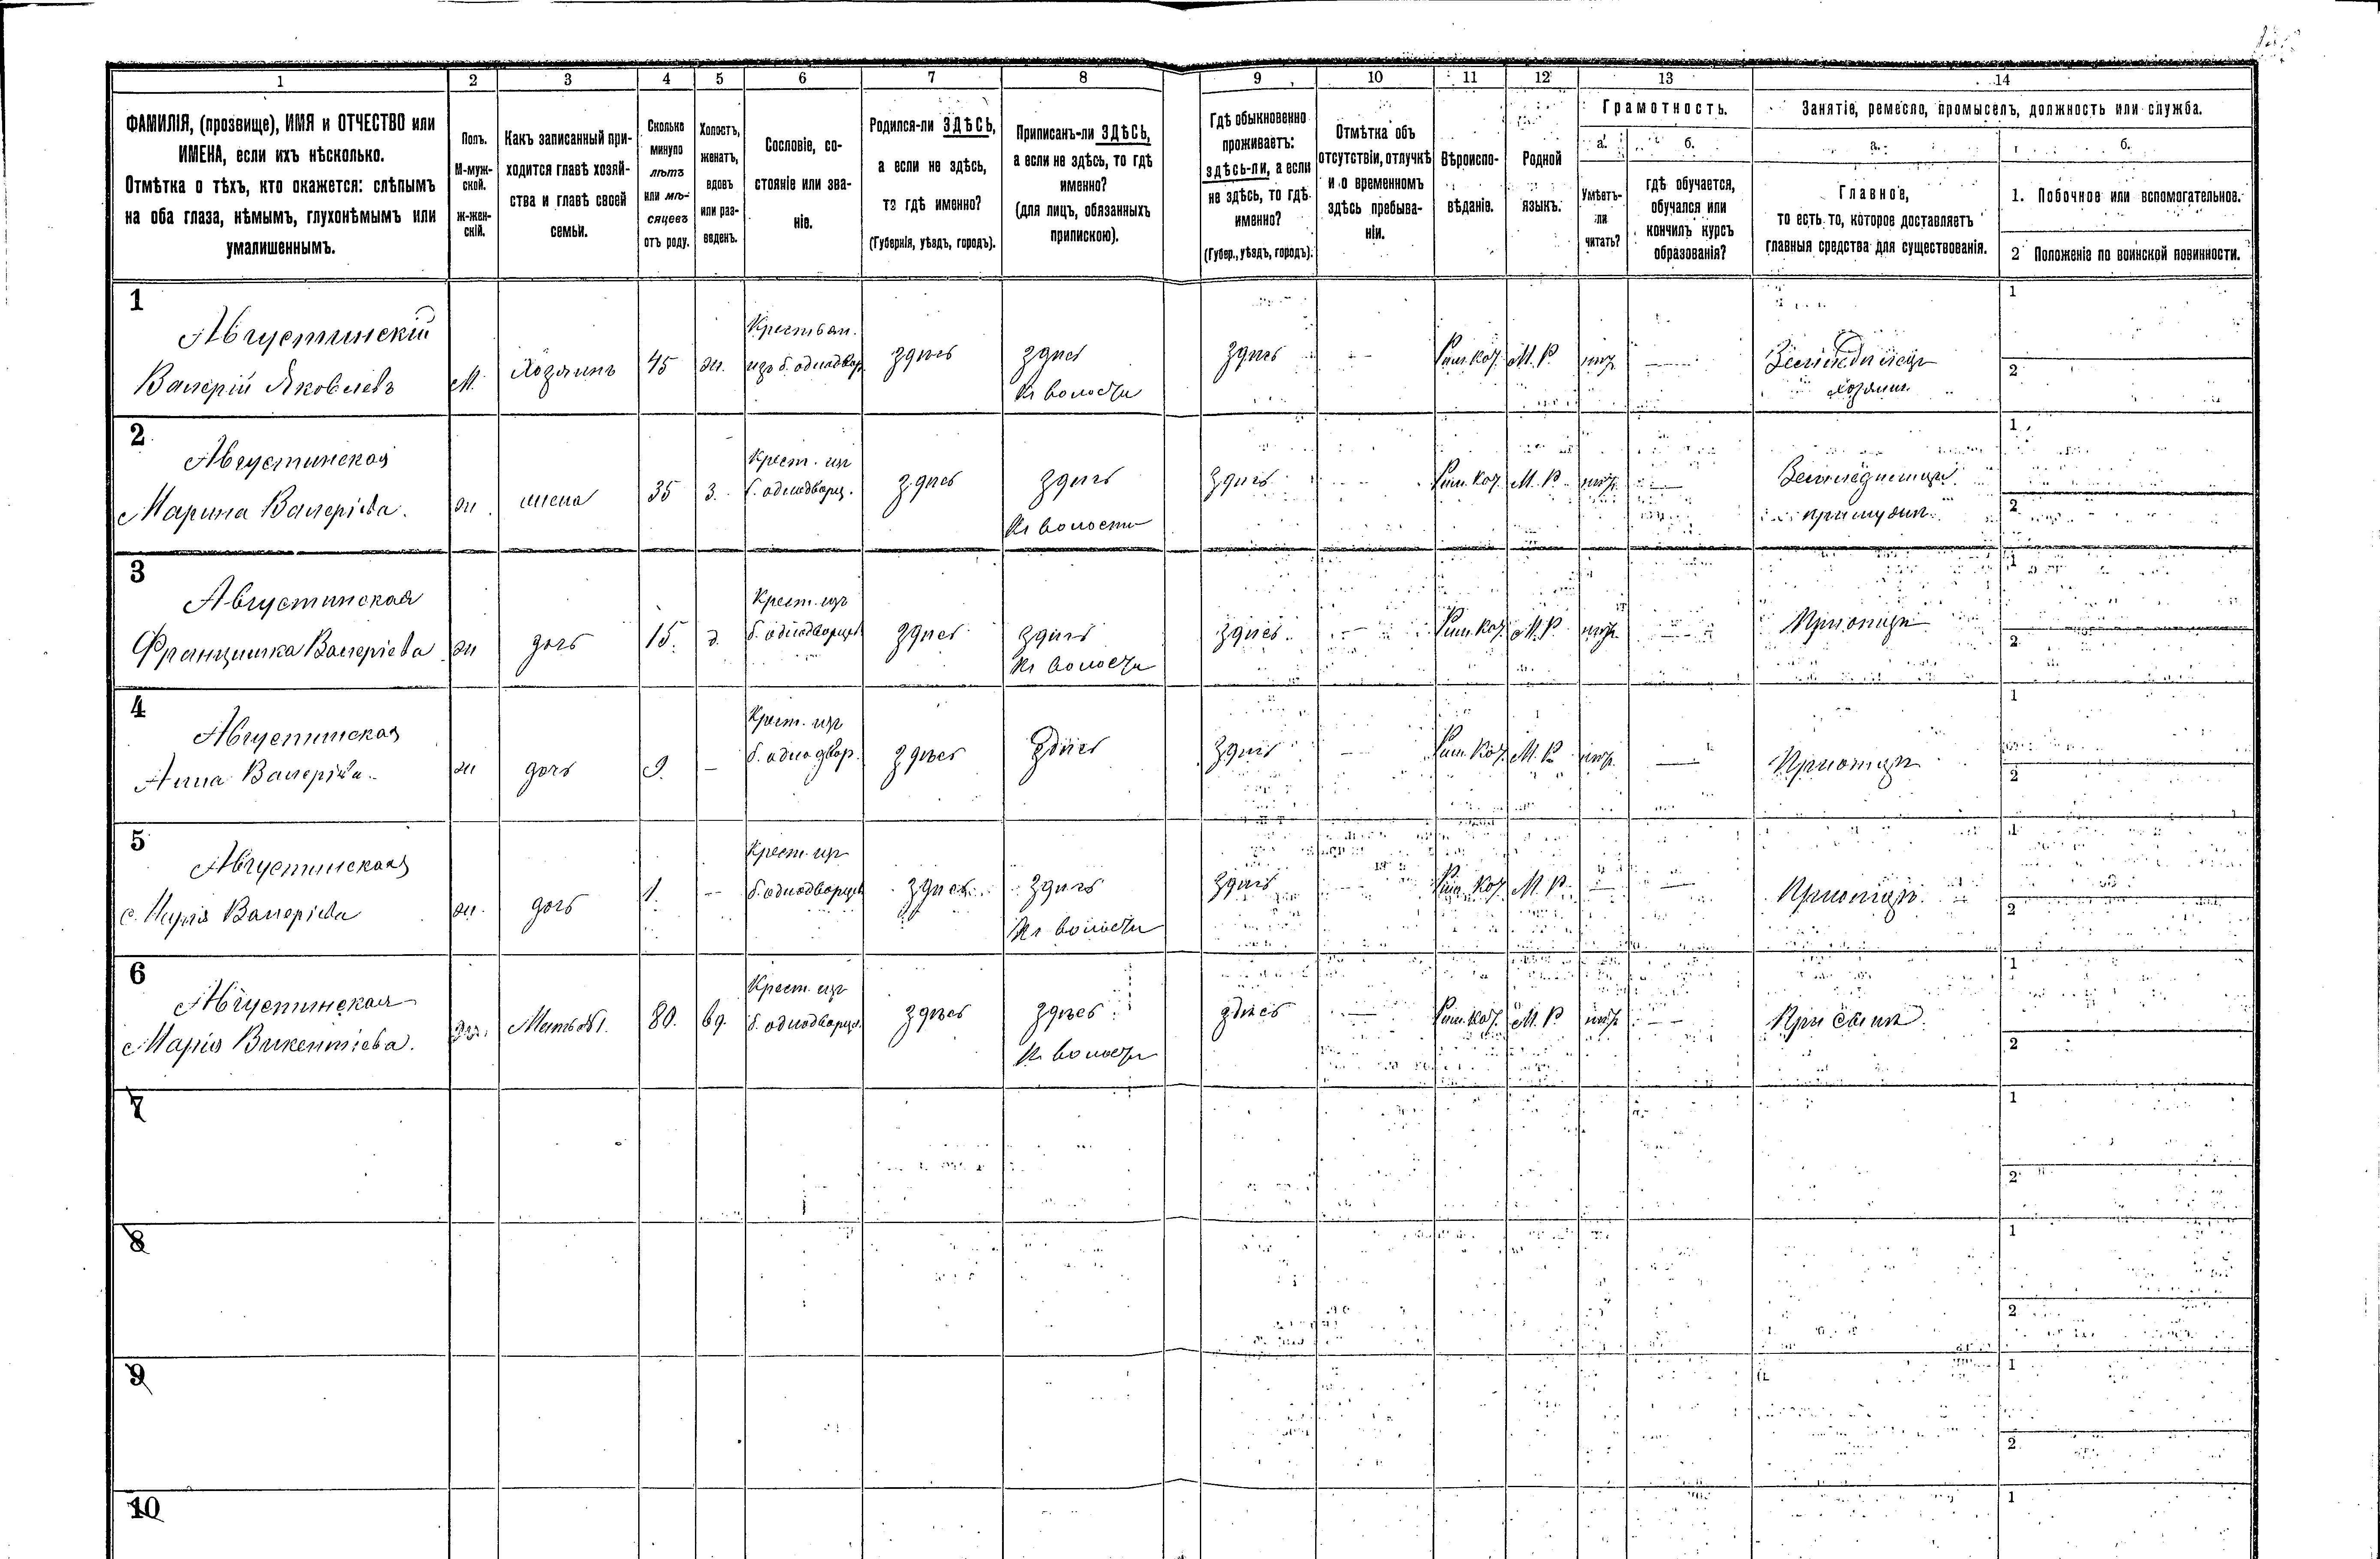 1 2 3 4 5 6 7 8 9 10 11 12 13 14
ФАМИЛІЯ, (прозвище), ИМЯ и ОТЧЕСТВО или
ИМЕНА, если ихъ нѣсколько.
Отмѣтка о тѣхъ, кто окажется: слѣпымъ
на оба глаза, нѣмымъ, глухонѣмымъ или
умалишеннымъ.
Полъ.
М-муж-
ской.
Ж-жен-
скій.
Какъ записанный при-
ходится главѣ хозяй-
ства и главѣ своей
семьи.
Сколько
минуло
лѣтъ
или мѣ-
сяцевъ
отъ роду.
Холостъ,
женатъ,
вдовъ
или раз-
веденъ.
Сословіе, со-
стояніе или зва-
ніе.
Родился-ли ЗДѢСЬ,
а если не здѣсь,
то гдѣ именно?
(Губернія, уѣздъ, городъ).
Приписанъ-ли ЗДѢСЬ,
а если не здѣсь, то гдѣ
именно?
(для лицъ, обязанныхъ
припискою).
Гдѣ обыкновенно
проживаетъ:
здѣсь-ли, а если
не здѣсь, то гдѣ
именно?
(Губер., уѣздъ, городъ).
Отмѣтка объ
отсутствіи, отлучкѣ
и о временномъ
здѣсь пребыва-
ніи.
Вѣроиспо-
вѣданіе.
Родной
языкъ.
Грамотность.
а. б.
Умѣетъ-
ли
читать?
гдѣ обучается,
обучался или
кончилъ курсъ
образованія?
Занятіе, ремесло, промыселъ, должность или служба.
а. б.
Главное,
то есть то, которое доставляетъ
главныя средства для существованія.
1. Побочное или вспомогательное.
2 Положеніе по воинской повинности.
1
Августинскій
Валерій Яковлевъ
М. Хозяинъ 45 ж.
Крестьян.
изъ б. однодвор.
здѣсь здѣсь
Къ волости
здѣсь — Рим.Кат. М. Р нѣтъ —
Земледѣлецъ
хозяинъ
1
2
2
Августинская
Марина Валеріева.
ж. жена 35 з.
Крест. изъ
б. однодворц.
здѣсь здѣсь
Къ волости
здѣсь Рим.Кат. М. Р нѣтъ —
Земледѣлецъ
при мужѣ
1
2
3
Августинская
Францишка Валеріева
ж дочь 15. д.
Крест. изъ
б. однодворцев
здѣсь здѣсь
Къ волости
здѣсь — Рим.Кат. М. Р нѣтъ —
При отцѣ
1
2
4
Августинская
Анна Валеріева
ж дочь 9. —
Крест. изъ
б. однодвор.
здѣсь здѣсь здѣсь — Рим.Кат. М. Р нѣтъ —
При отцѣ
1
2
5
Августинская
Марія Валеріева
ж. дочь 1. —
Крест. изъ
б. однодворцев
здѣсь здѣсь
Къ волости
здѣсь Рим.Кат. М. Р. — —
При отцѣ
1
2
6
Августинская
Марія Викентіева.
ж. Мать 80. вд.
Крест. изъ
б. однодворце.
здѣсь здѣсь
Къ волости
здѣсь — Рим.Кат. М. Р нѣтъ —
При сынѣ
1
2
7
1
2
8
1
2
9
1
2
10
1